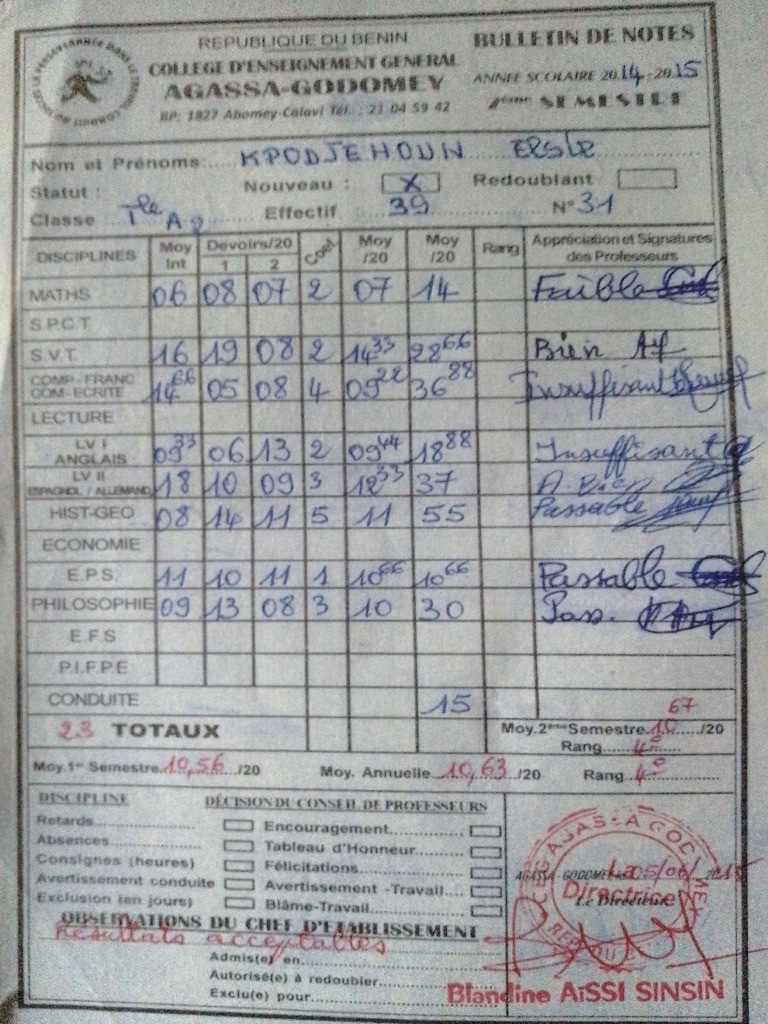 REPUBLIQUE DU BENIN
COLLEGE D'ENSEIGNEMENT GENERAL
AGASSA-GODOMEY
BP: 1827 Abomey-Calavi Tél. : 21 04 59 42
BULLETIN DE NOTES
ANNEE SCOLAIRE 2014-2015
2ème SEMESTRE
Nom et Prénoms KPODJEHOUN
Statut : Nouveau : X Redoublant
Classe Tle A2 Effectif 39 N° 31
DISCIPLINES Moy Int Devoirs/20 1 2 Coef Moy /20 Moy /20 Rang Appréciation et Signatures des Professeurs
MATHS 06 08 07 2 07 14 Faible
S.P.C.T
S.V.T. 16 19 08 2 14 33 28 66 Bien
COMP-FRANC COM-ECRITE 14 66 05 08 4 09 22 36 88 Insuffisant
LECTURE
LV I ANGLAIS 09 33 06 13 2 09 44 18 88 Insuffisant
LV II ESPAGNOL / ALLEMAND 18 10 09 3 12 33 37 A. Bien
HIST-GEO 08 14 11 5 11 55 Passable
ECONOMIE
E.P.S. 11 10 11 1 10 66 10 66 Passable
PHILOSOPHIE 09 13 08 3 10 30 Pass.
E.F.S
P.I.F.P.E
CONDUITE 15
23 TOTAUX Moy.2ème Semestre 10 67 /20
Rang 4e
Moy.1er Semestre 10,56 /20 Moy. Annuelle 10,63 /20 Rang 4e
DISCIPLINE
Retards
Absences
Consignes (heures)
Avertissement conduite
Exclusion (en jours)
DÉCISION DU CONSEIL DE PROFESSEURS
Encouragement
Tableau d'Honneur
Félicitations
Avertissement -Travail
Blâme-Travail
OBSERVATIONS DU CHEF D'ETABLISSEMENT
Résultats acceptables
Admis(e) en
Autorisé(e) à redoubler
Exclu(e) pour
AGASSA-GODOMEY 05/06/2015
La Directrice
Le Directeur
Blandine AïSSI SINSIN